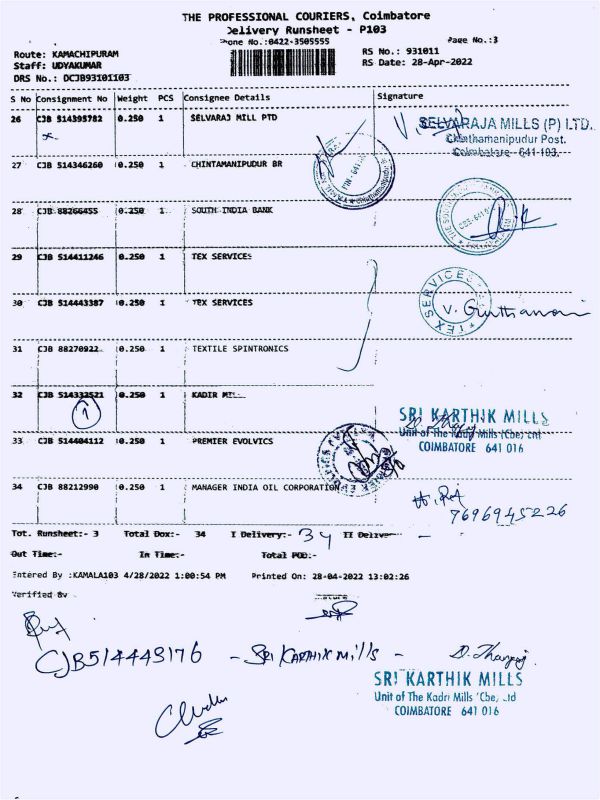 THE PROFESSIONAL COURIERS, Coimbatore
Delivery Runsheet - P103
Phone No.:0422-3505555 Page No.:3
Route: KAMACHIPURAM RS No.: 931011
Staff: UDYAKUMAR RS Date: 28-Apr-2022
DRS No.: DCJB93101103
S No Consignment No Weight PCS Consignee Details Signature
26 CJB 514395782 0.250 1 SELVARAJ MILL PTD
SELVARAJA MILLS (P) LTD.
Chinthamanipudur Post.
Coimbatore- 641-103.
27 CJB 514346260 0.250 1 CHINTAMANIPUDUR BR
28 CJB 88266455 0.250 1 SOUTH INDIA BANK
29 CJB 514411246 0.250 1 TEX SERVICES
TEX SERVICES
30 CJB 514443387 0.250 1 TEX SERVICES
31 CJB 88270922 0.250 1 TEXTILE SPINTRONICS
32 CJB 514332521 0.250 1 KADIR MILL
1
SRI KARTHIK MILLS
Unit of The Kadri Mills (Cbe) Ltd
COIMBATORE 641 016
33 CJB 514404112 0.250 1 PREMIER EVOLVICS
34 CJB 88212990 0.250 1 MANAGER INDIA OIL CORPORATION
7696945226
Tot. Runsheet:- 3 Total Dox:- 34 I Delivery:- 34 II Deliver -
Out Time:- In Time:- Total POD:-
Entered By :KAMALA103 4/28/2022 1:00:54 PM Printed On: 28-04-2022 13:02:26
Verified By
CJB514443176 - SRI KARTHIK MILLS - D. Thangaraj
SRI KARTHIK MILLS
Unit of The Kadri Mills (Cbe) Ltd
COIMBATORE 641 016